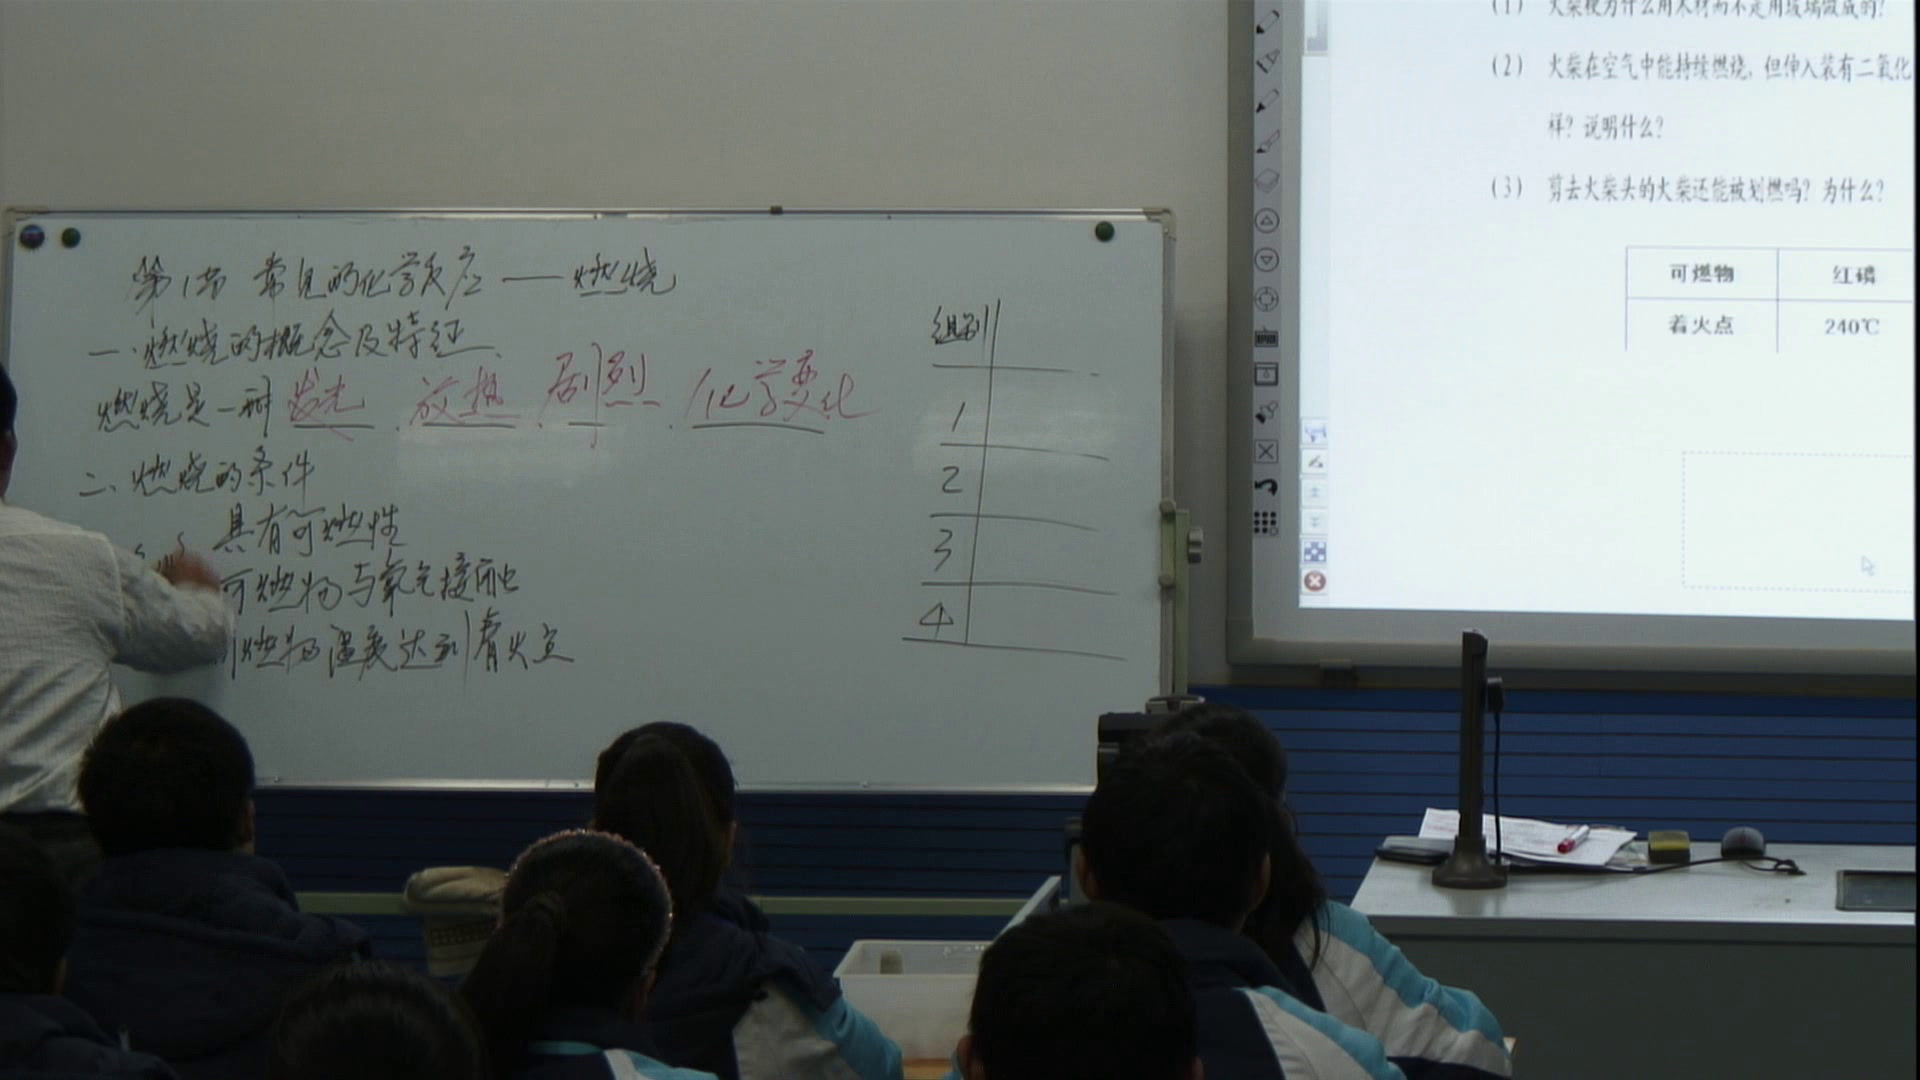 第1节 常见的化学反应——燃烧
一.燃烧的概念及特征
燃烧是一种 发光 . 放热 . 剧烈 . 化学变化
二、燃烧的条件
具有可燃性
可燃物与氧气接触
燃物温度达到着火点
组别
1
2
3
4
(1) 火柴梗为什么用木材而不是用玻璃做成的?
(2) 火柴在空气中能持续燃烧,但伸入装有二氧化
样?说明什么?
(3) 剪去火柴头的火柴还能被划燃吗?为什么?
可燃物 红磷
着火点 240℃